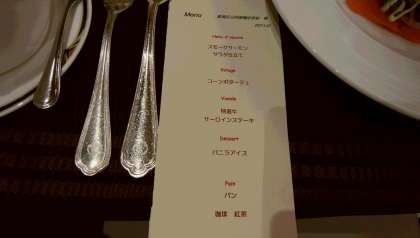 Menu
Hors-d'oeuvre
スモークサーモン
サラダ仕立て
Potage
コーンポタージュ
Viande
特選牛
サーロインステーキ
Dessert
バニラアイス
Pain
パン
珈琲 紅茶